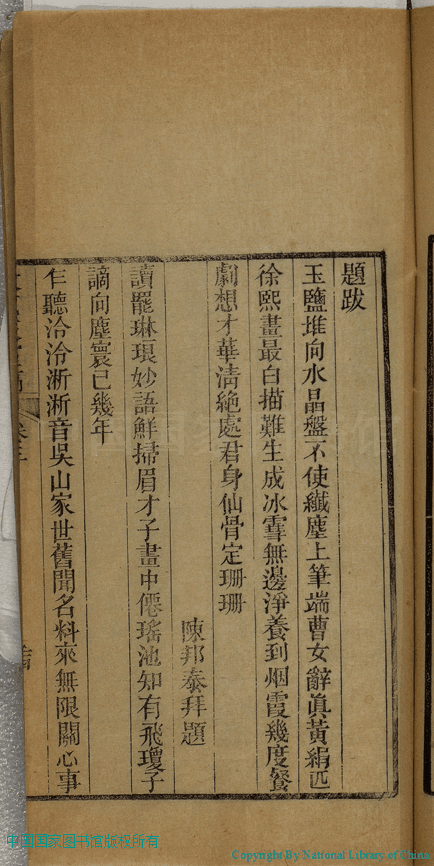 題跋
玉鹽堆向水晶盤不使纖塵上筆端曹女辭眞黃絹匹
徐熙畫最白描難生成冰雪無邊淨養到烟霞幾度餐
劇想才華淸絕處君身仙骨定珊珊
陳邦泰拜題
讀罷琳琅妙語鮮掃眉才子畫中僊瑤池知有飛瓊子
謫向塵寰已幾年
乍聽泠泠淅淅音吳山家世舊聞名料來無限關心事
中国国家图书馆版权所有
Copyright By National Library of China